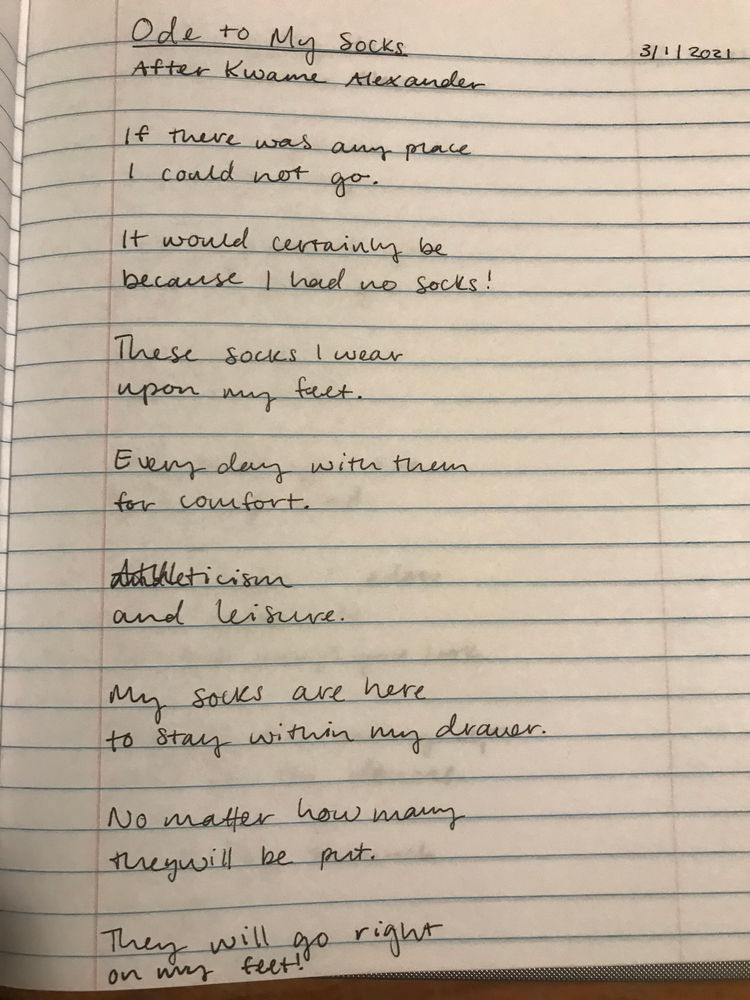 Ode to My Socks
3/1/2021
After Kwame Alexander
If there was any place
I could not go.
It would certainly be
because I had no socks!
These socks I wear
upon my feet.
Every day with them
for comfort.
Athleticism
and leisure.
My socks are here
to stay within my drawer.
No matter how many
they will be put.
They will go right
on my feet!